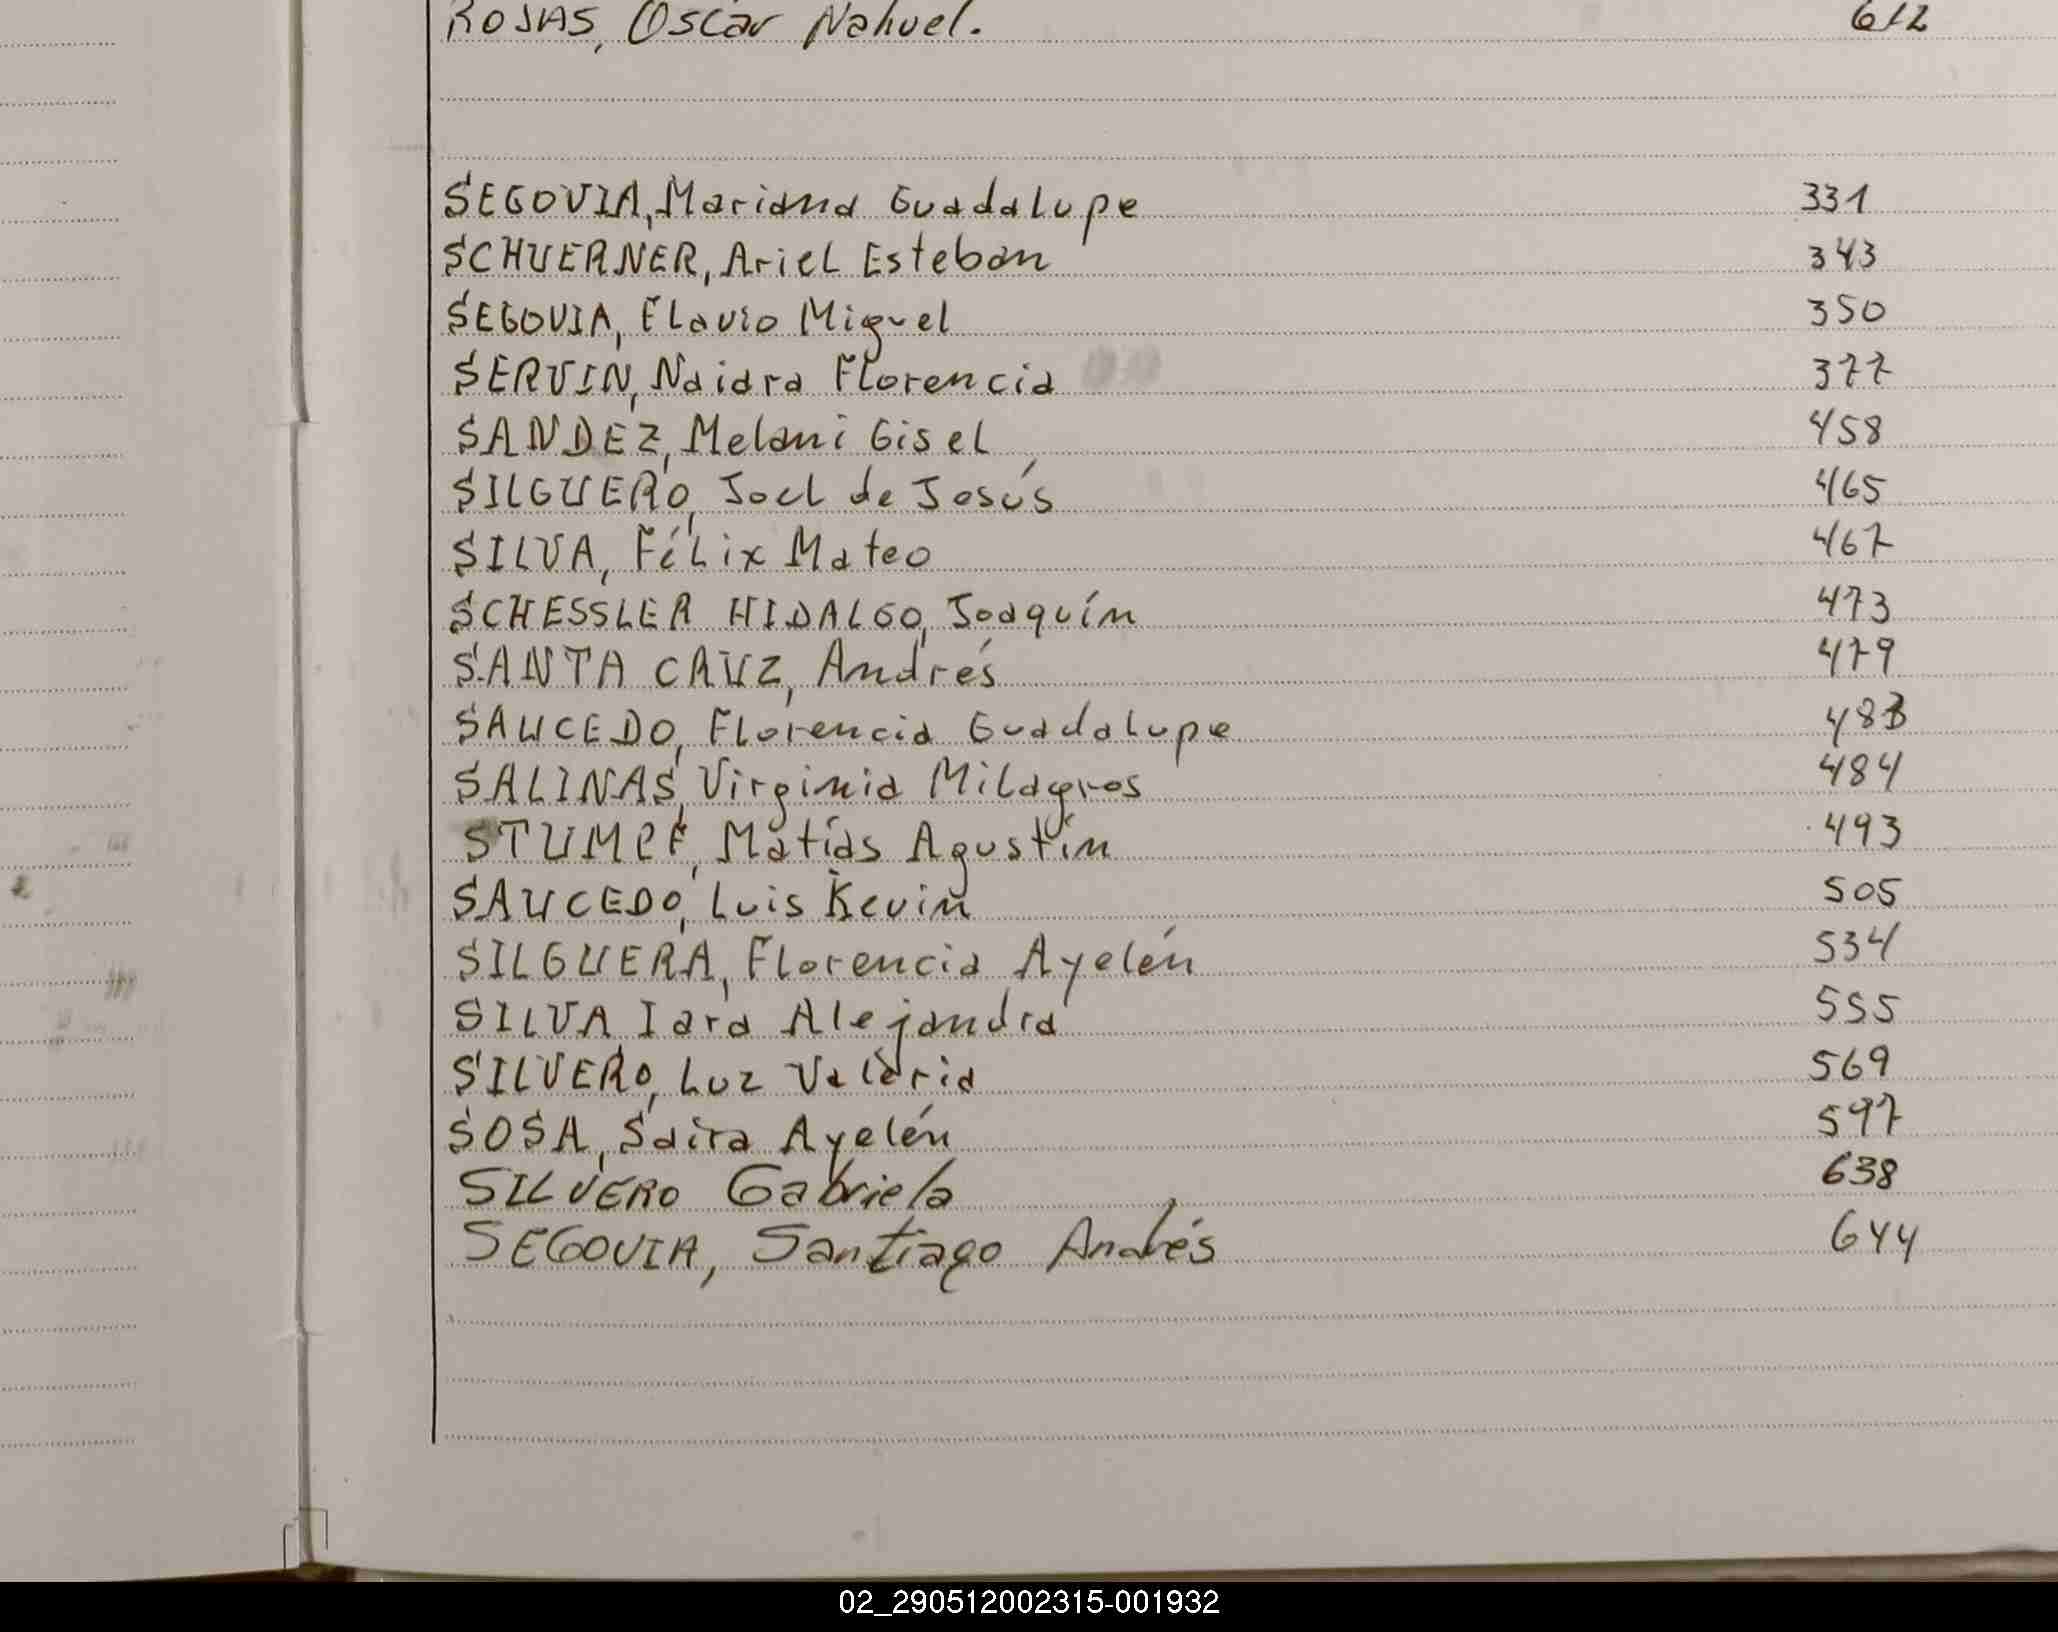 ROJAS, Oscar Nahuel. 612
SEGOVIA, Mariana Guadalupe 331
SCHUERNER, Ariel Esteban 343
SEGOVIA, Flavio Miguel 350
SERVIN, Naiara Florencia 377
SANDEZ, Melani Gisel 458
SILGUERO, Joel de Jesús 465
SILVA, Félix Mateo 467
SCHESSLER HIDALGO, Joaquín 473
SANTA CRUZ, Andrés 479
SAUCEDO, Florencia Guadalupe 483
SALINAS, Virginia Milagros 484
STUMPF, Matías Agustín 493
SAUCEDO, Luis Kevin 505
SILGUERA, Florencia Ayelén 534
SILVA Iara Alejandra 555
SILVERO, Luz Valeria 569
SOSA, Saira Ayelén 597
SILVERO Gabriela 638
SEGOVIA, Santiago Andrés 644
02_290512002315-001932